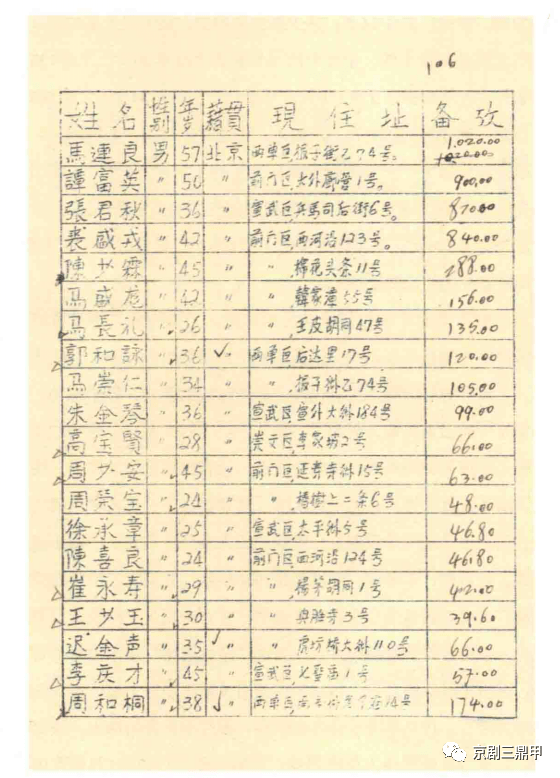 106
姓名 性别 年岁 籍貫 現住址 备攷
馬連良 男 57 北京 西单区振子街乙74号。 1,020.00
1020.00
譚富英 〃 50 〃 前门区大外廊营1号。 900.00
張君秋 〃 36 〃 宣武区兵馬司后街6号。 870.00
裘盛戎 〃 42 〃 前门区西河沿123号。 840.00
陳少霖 〃 45 〃 〃 棉花头条11号 288.00
馬盛龙 〃 42 〃 〃 韓家潭55号 156.00
馬長礼 〃 26 〃 〃 王皮胡同47号 135.00
郭和詠 〃 36 〃 西单区后达里17号 120.00
馬崇仁 〃 34 〃 〃 振子街乙74号 105.00
朱金琴 〃 36 〃 宣武区宣外大街184号 99.00
高宝賢 〃 28 〃 崇文区李家坡2号 66.00
周少安 〃 45 〃 前门区延寿寺街15号 63.00
周荣宝 〃 24 〃 〃 椿树上二条6号 48.00
徐永章 〃 25 〃 宣武区太平街5号 46.80
陳喜良 〃 24 〃 前门区西河沿124号 46.80
崔永寿 〃 29 〃 〃 楊茅胡同1号 42.00
王少玉 〃 30 〃 〃 3号 39.60
迟金声 〃 35 〃 〃 虎坊橋大街110号 66.00
李庆才 〃 45 〃 宣武区 1号 57.00
周和桐 〃 38 〃 西单区 14号 174.00
京剧三鼎甲